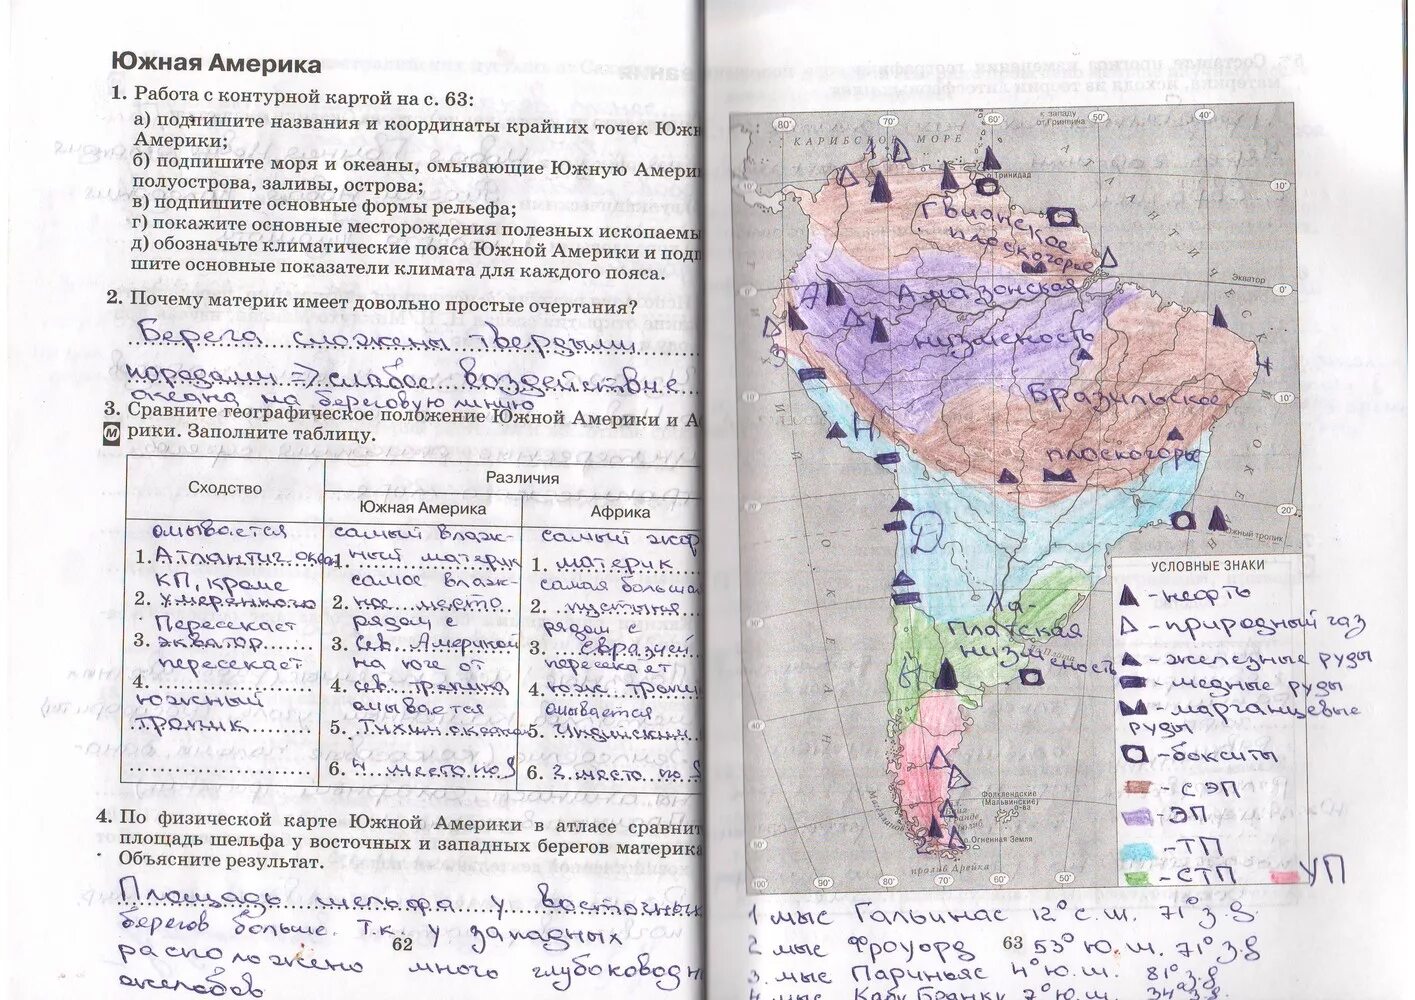 Южная Америка
1. Работа с контурной картой на с. 63:
а) подпишите названия и координаты крайних точек Южн
Америки;
б) подпишите моря и океаны, омывающие Южную Амери
полуострова, заливы, острова;
в) подпишите основные формы рельефа;
г) покажите основные месторождения полезных ископаемы
д) обозначьте климатические пояса Южной Америки и подп
шите основные показатели климата для каждого пояса.
2. Почему материк имеет довольно простые очертания?
Берега сложены твердыми
породами => слабое воздействие
океана на береговую линию
3. Сравните географическое положение Южной Америки и А
М рики. Заполните таблицу.
Сходство
Различия
Южная Америка
Африка
омывается
1. Атлантич. океан
КП, кроме
2. умеренного
Пересекает
3. экватор
пересекает
4.
южный
тропик
самый влаж-
1. ный материк
самое влаж-
2. ное место
рядом с
3. Сев. Америкой
на юг от
4. сев. тропика
омывается
5. Тихим океаном
6. 4 место по S
самый жар
1. материк
самая больша
2. пустыня
рядом с
3. Евразией
пересекает
4. южн. тропи
омывается
5. Индийским
6. 2 место по S
4. По физической карте Южной Америки в атласе сравнит
площадь шельфа у восточных и западных берегов материка
Объясните результат.
Площадь шельфа у восточных
берегов больше. Т.к. у западных
расположено много глубоководн
желобов
62
80° 70° 60° 50° 40°
к западу
от Гринвича
КАРИБСКОЕ МОРЕ
1
о. Тринидад
10° 10°
АТЛАНТИЧЕСКИЙ ОКЕАН
Гвианское
плоскогорье
Экватор
0° 0°
А
Амазонская
низменность
3
4
ТИХИЙ ОКЕАН
Бразильское
плоскогорье
10° 10°
Н
20°
Южный тропик
Д
Ла-
Платская
низменность
40°
Фолклендские
(Мальвинские)
о-ва
о. Огненная Земля
пролив Дрейка
50°
100° 90° 80° 70° 60° 50°
УСЛОВНЫЕ ЗНАКИ
- нефть
- природный газ
- железные руды
- медные руды
- марганцевые
руды
- бокситы
- СЭП
- ЭП
- ТП
- СТП
УП
1 мыс Гальинас 12° с.ш. 71° з.д
2 мыс Фроуорд 53° ю.ш. 71° з.д
63
3. мыс Париньяс 4° ю.ш. 81° з.д
4. мыс Кабу Бранку 7° ю.ш. 34° з.д.